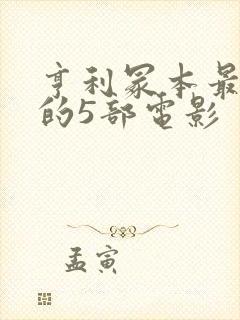 亨利冢本最
的5部电影
孟寅